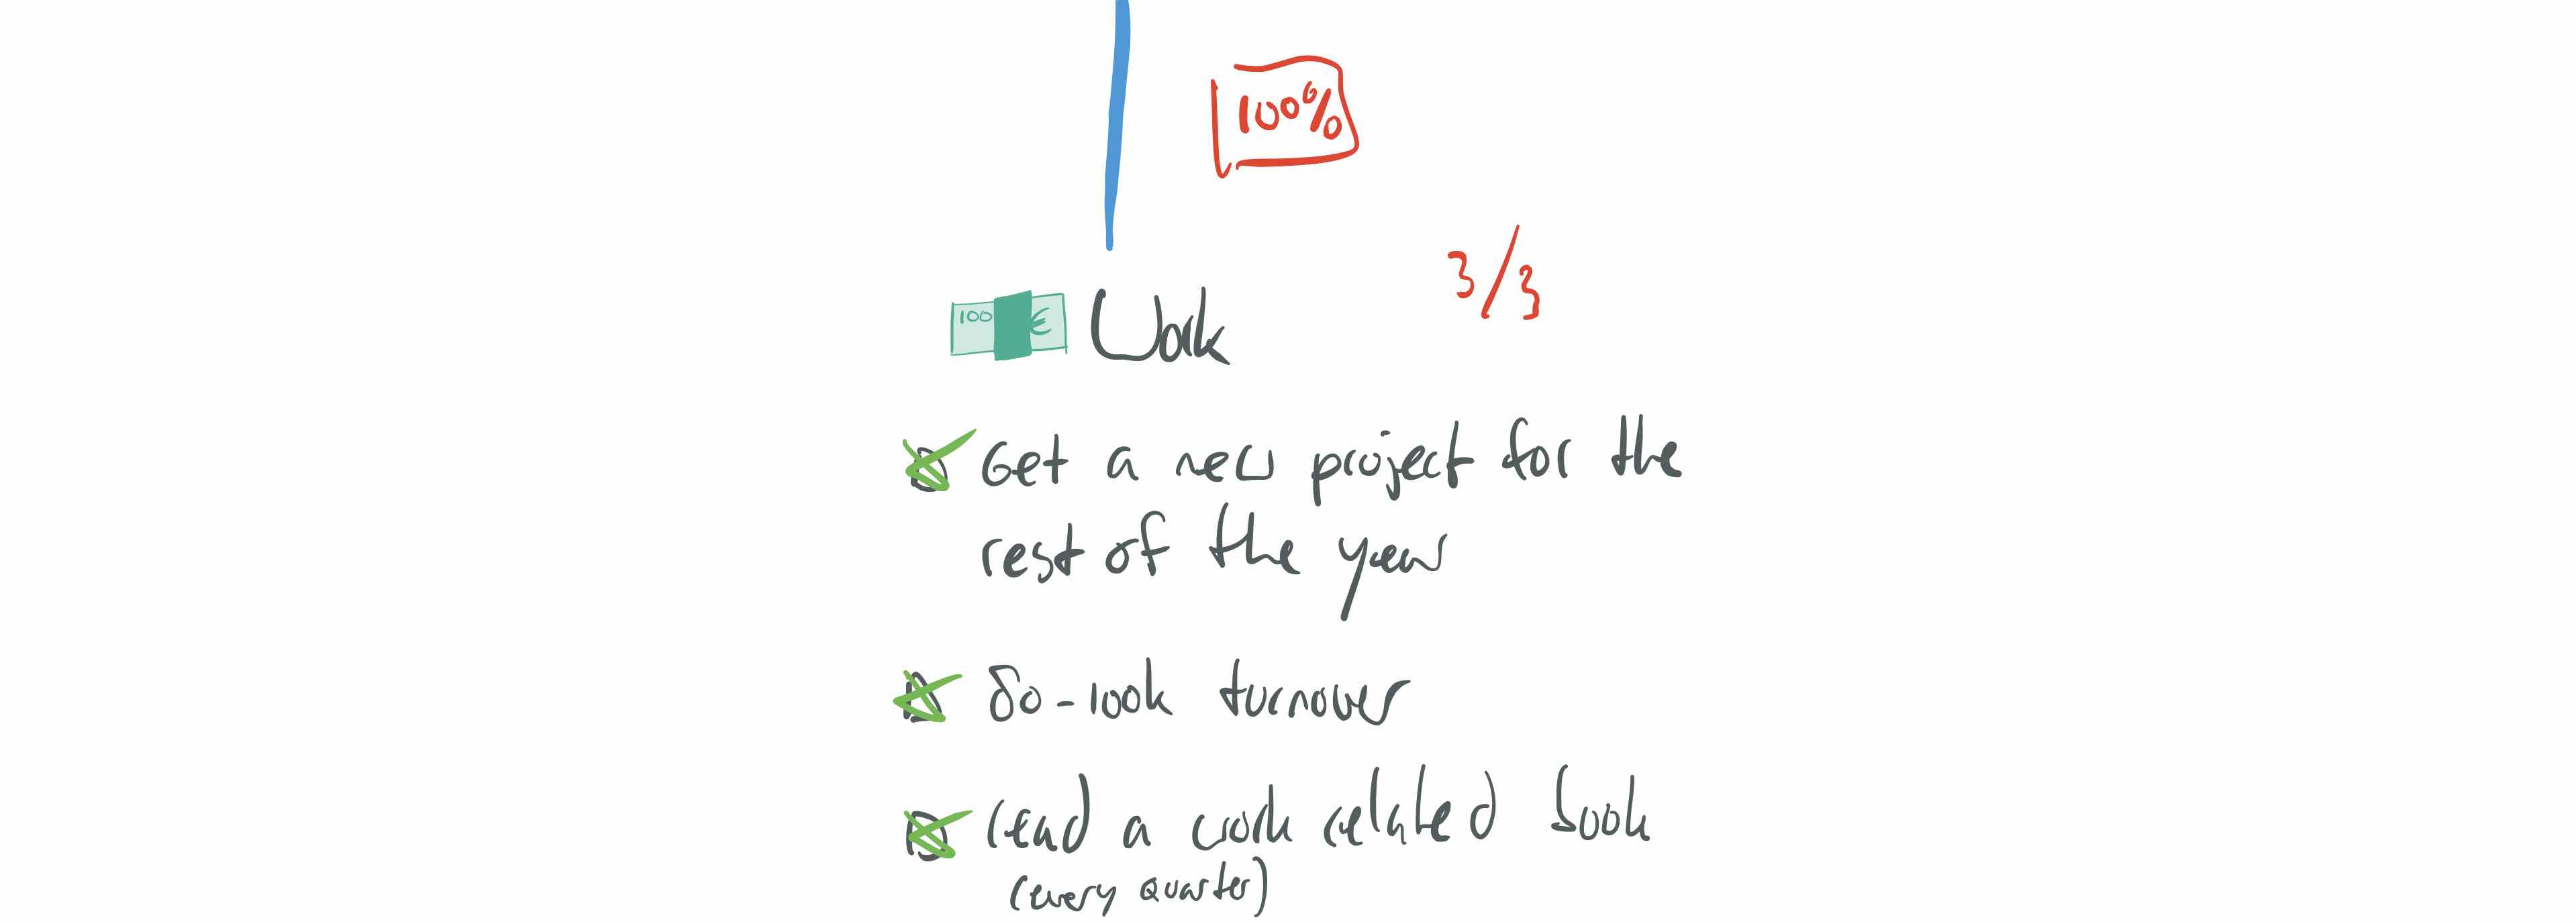 100%
3/3
100 €
Work
Get a new project for the
rest of the year
80-100k turnover
read a work related book
(every quarter)